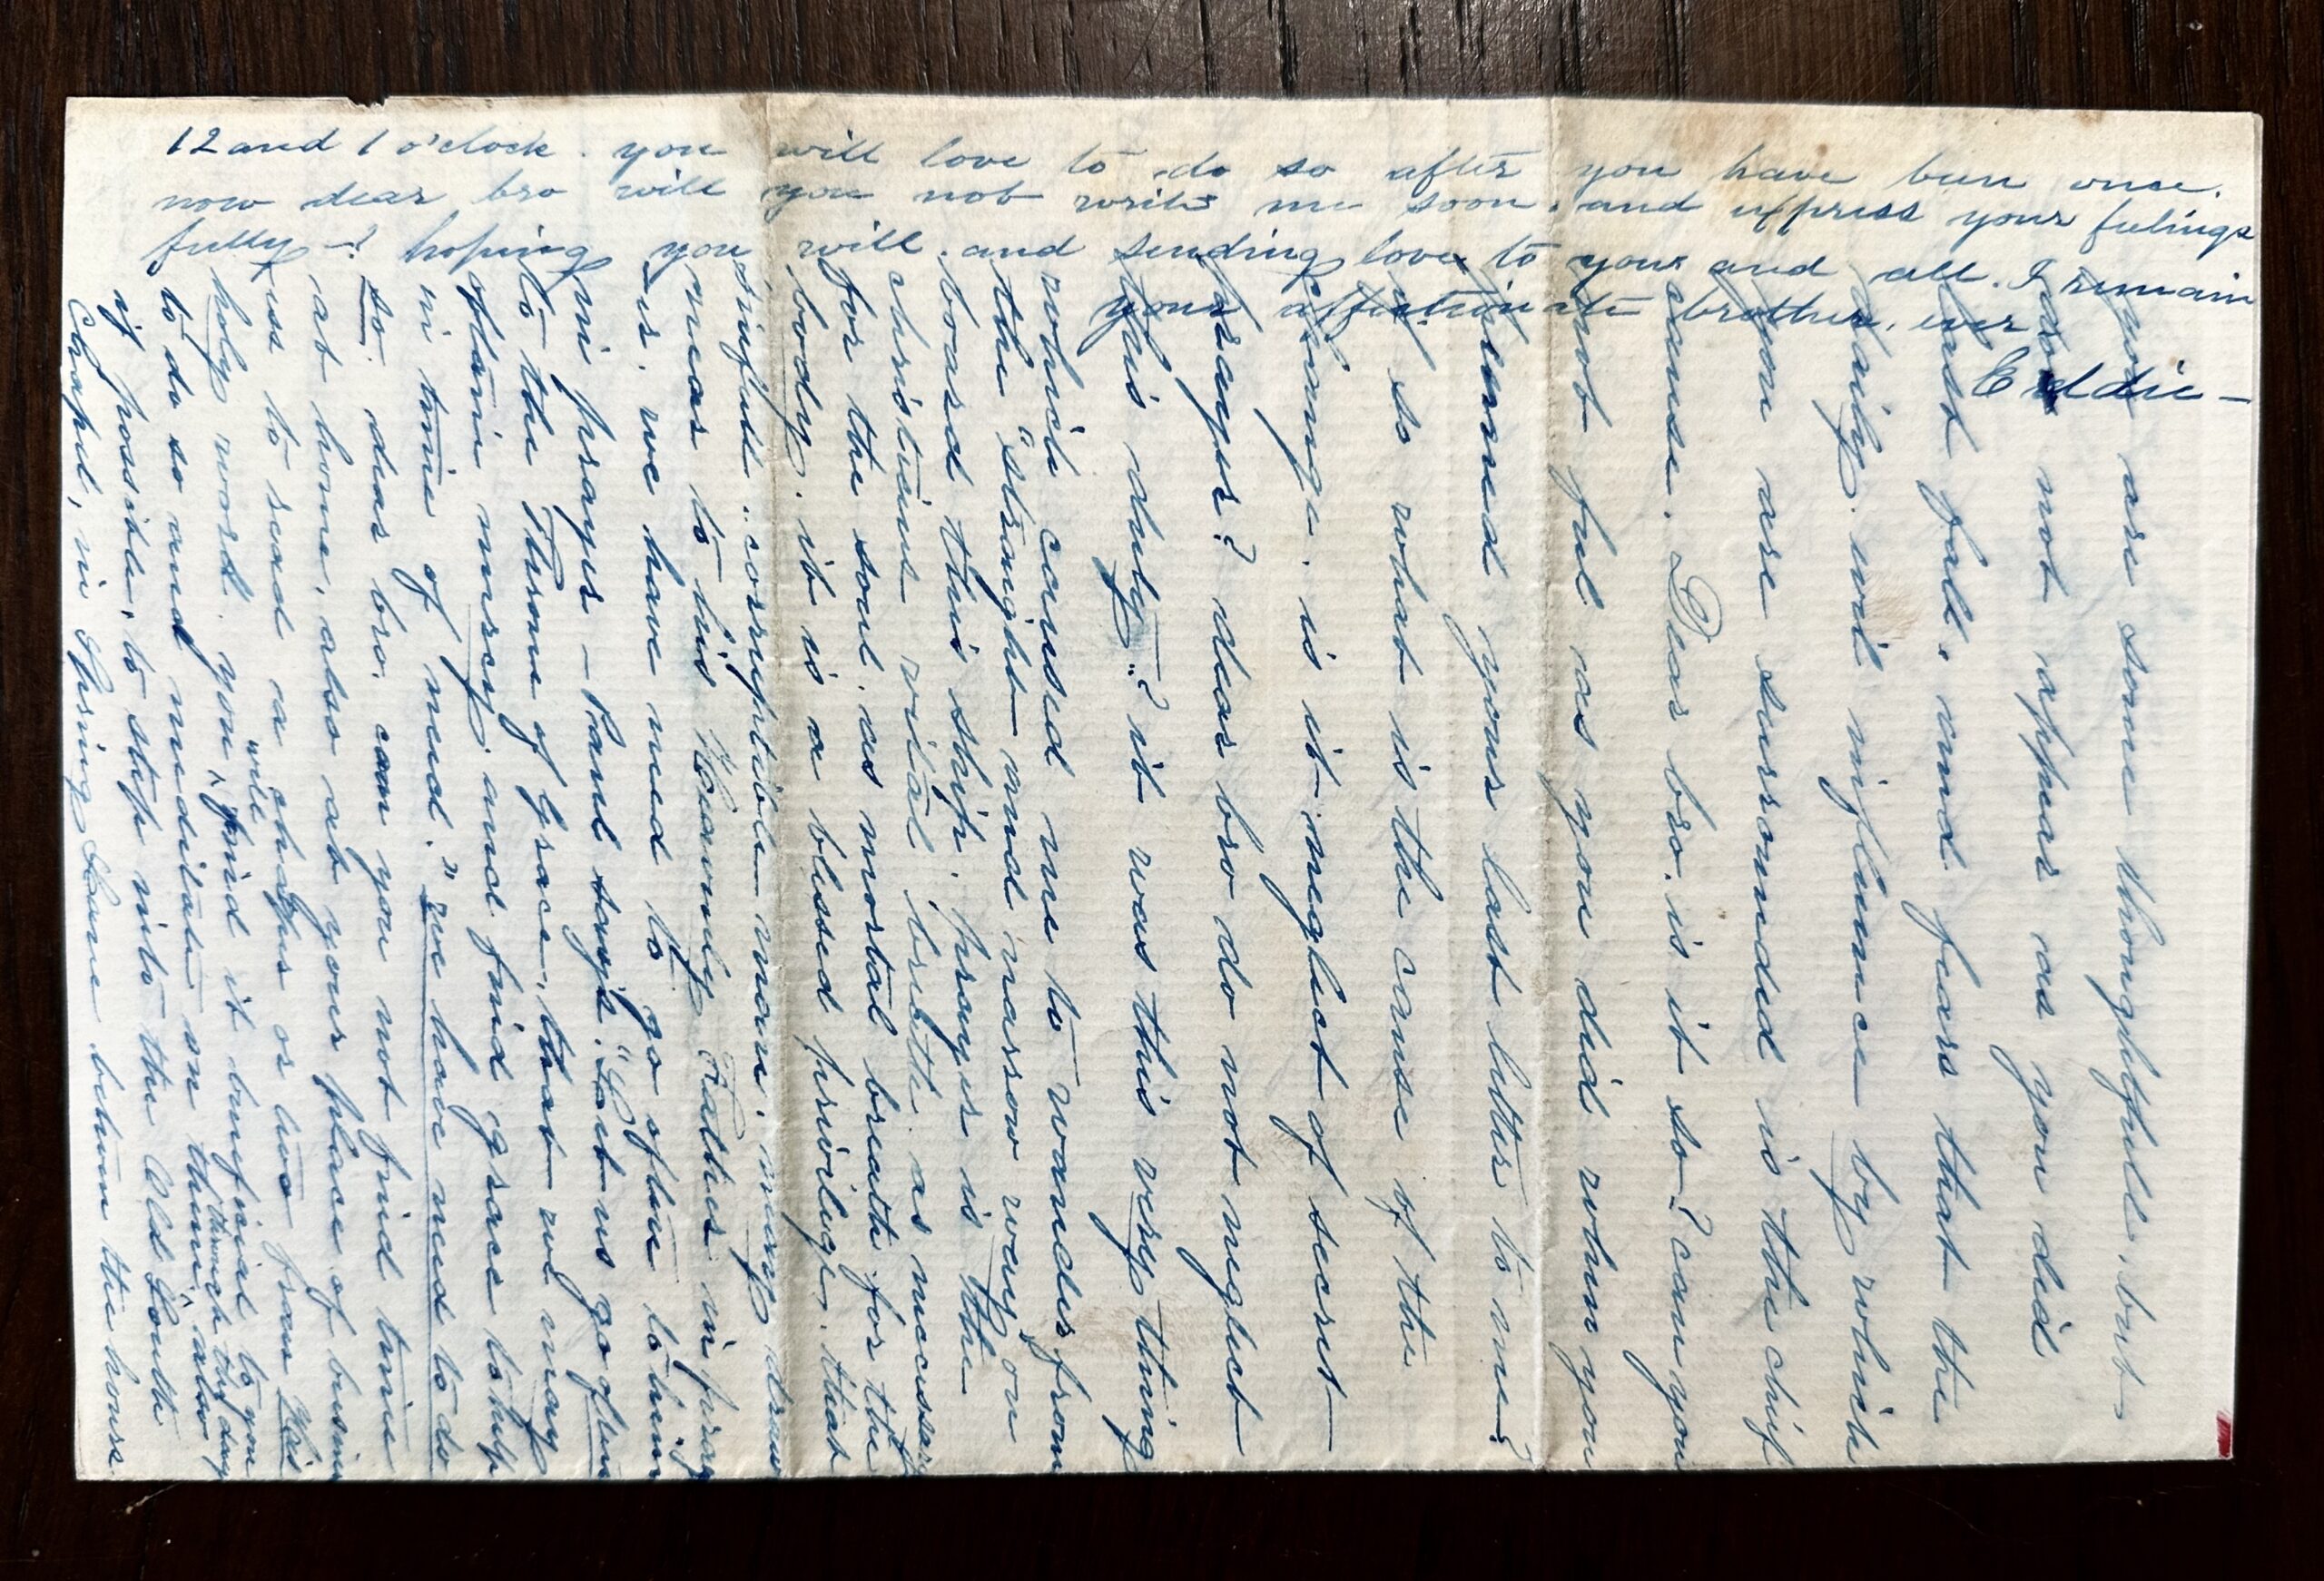 you are some thoughtful, but
do not appear as you did
last fall, and fears that the
daily evil influence by which
you are surrounded is the chief
cause. Dear bro. is it so? can you
not feel as you did when you
penned your last letter to me?
if so what is the cause of the
change. is it neglect of secret
prayer? dear bro do not neglect
this duty? it was this very thing
which caused me to wander from
the "straight and narrow way," on
board this ship. prayer is the
christians vital breath. as necessary
for the soul. as mortal breath for the
body. it is a blessed privilege. that
sinful, corruptable man. may draw
near to his Heavenly Father in prayer
is. we have need to go often to him
in prayer - Paul says. "Let us go often
to the Throne of Grace, that we may
obtain mercy. and find grace to help
in time of need." we have need to do
so. dear bro. can you not find time
at home, also at your place of business
to read a chapter or two from His
holy word. you "will" find it beneficial to you
to do so and meditate on them, through the day, also
if possible, to step into the Old South
Chapel, in Spring Lane between the hours
12 and 1 o'clock. you will love to do so after you have been once.
now dear bro will you not write me soon. and express your feelings
fully -? hoping you will. and sending love to you and all. I remain
your affectionate brother, ever
Eddie -